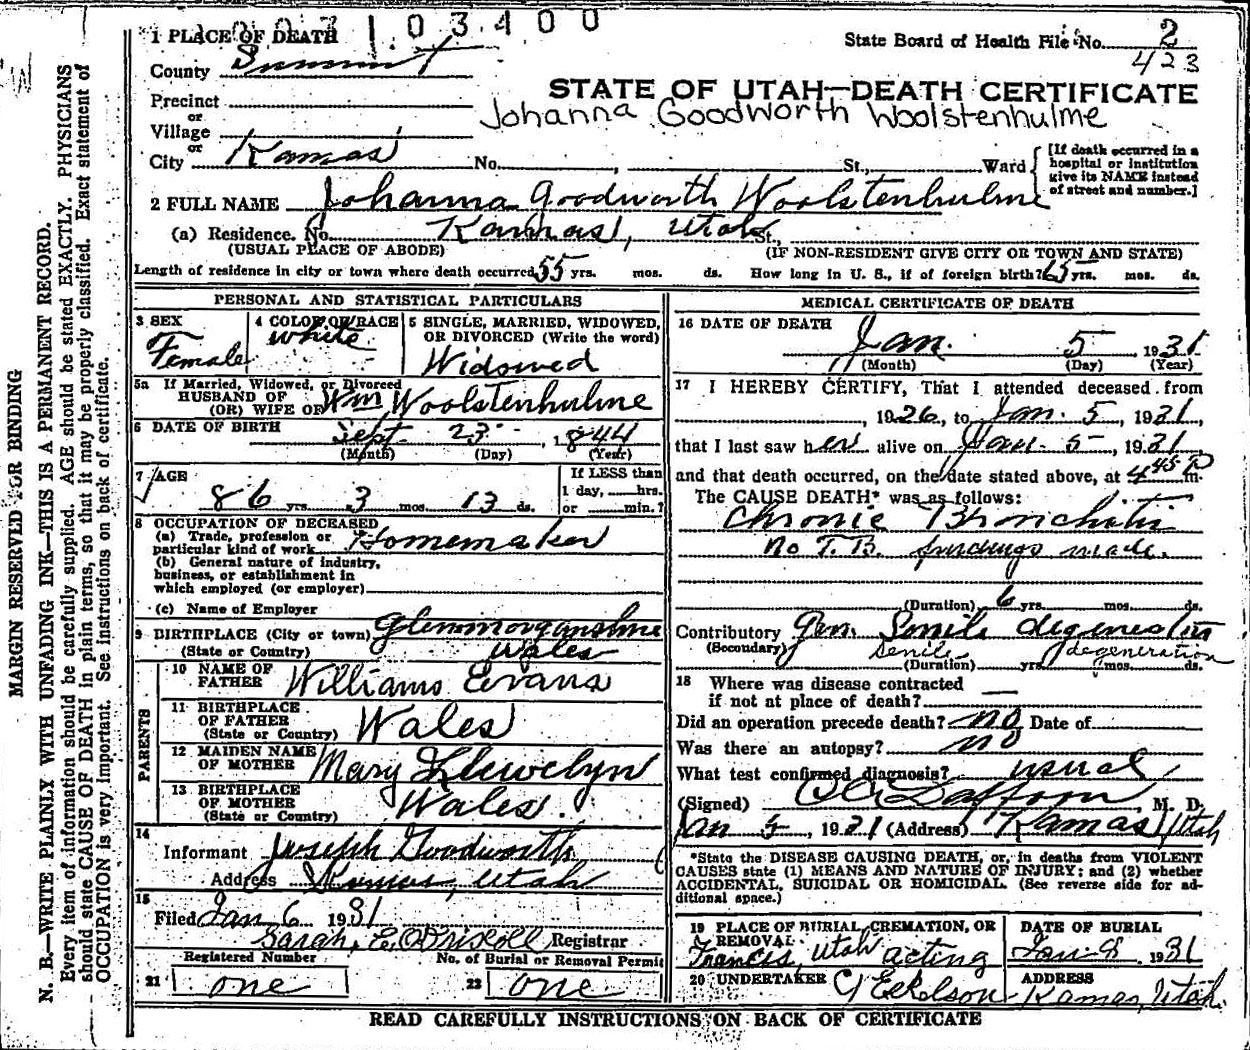 1 PLACE OF DEATH
1 0 3 4 0 0
State Board of Health File No. 2
423
County Summit
STATE OF UTAH—DEATH CERTIFICATE
Precinct
or
Johanna Goodworth Woolstenhulme
Village
or
City Kamas No. , St., Ward
[If death occurred in a
hospital or institution
give its NAME instead
of street and number.]
2 FULL NAME Johanna Goodworth Woolstenhulme
(a) Residence. No. Kamas, Utah St.,
(USUAL PLACE OF ABODE) (IF NON-RESIDENT GIVE CITY OR TOWN AND STATE)
Length of residence in city or town where death occurred 55 yrs. mos. ds. How long in U. S., if of foreign birth? 65 yrs. mos. ds.
PERSONAL AND STATISTICAL PARTICULARS
3 SEX
Female
4 COLOR OR RACE
white
5 SINGLE, MARRIED, WIDOWED,
OR DIVORCED (Write the word)
Widowed
5a If Married, Widowed, or Divorced
HUSBAND OF
(OR) WIFE OF Wm Woolstenhulme
6 DATE OF BIRTH Sept 23 1844
(Month) (Day) (Year)
7 AGE
86 yrs. 3 mos. 13 ds.
If LESS than
1 day, hrs.
or min.?
8 OCCUPATION OF DECEASED
(a) Trade, profession or
particular kind of work Homemaker
(b) General nature of industry,
business, or establishment in
which employed (or employer)
(c) Name of Employer
9 BIRTHPLACE (City or town) Glenmorganshire
(State or Country) Wales
PARENTS
10 NAME OF
FATHER Williams Evans
11 BIRTHPLACE
OF FATHER
(State or Country) Wales
12 MAIDEN NAME
OF MOTHER Mary Llewelyn
13 BIRTHPLACE
OF MOTHER
(State or Country) Wales.
14
Informant Joseph Goodworth
Address Kamas, Utah
15
Filed Jan 6 1931
Sarah E. O'Driscoll Registrar
Registered Number No. of Burial or Removal Permit
21 one 22 one
MEDICAL CERTIFICATE OF DEATH
16 DATE OF DEATH
Jan. 5 1931
(Month) (Day) (Year)
17 I HEREBY CERTIFY, That I attended deceased from
, 1926, to Jan. 5, 1931,
that I last saw her alive on Jan. 5, 1931
and that death occurred, on the date stated above, at 4 45 P m.
The CAUSE DEATH* was as follows:
Chronic Bronchitis
no T.B. findings made.
(Duration) 6 yrs. mos. ds.
Contributory Gen. Senile degeneration
(Secondary) Senile degeneration
(Duration) yrs. mos. ds.
18 Where was disease contracted
if not at place of death?
Did an operation precede death? no Date of
Was there an autopsy? no
What test confirmed diagnosis? usual
(Signed) M. D.
Jan 5, 1931 (Address) Kamas, Utah
*State the DISEASE CAUSING DEATH, or, in deaths from VIOLENT
CAUSES state (1) MEANS AND NATURE OF INJURY; and (2) whether
ACCIDENTAL, SUICIDAL OR HOMICIDAL. (See reverse side for ad-
ditional space.)
19 PLACE OF BURIAL, CREMATION, OR
REMOVAL
Francis, Utah acting
DATE OF BURIAL
Jan 8 1931
20 UNDERTAKER
ADDRESS
Kamas, Utah.
READ CAREFULLY INSTRUCTIONS ON BACK OF CERTIFICATE
MARGIN RESERVED FOR BINDING
N. B.—WRITE PLAINLY WITH UNFADING INK—THIS IS A PERMANENT RECORD.
Every item of information should be carefully supplied. AGE should be stated EXACTLY. PHYSICIANS
should state CAUSE OF DEATH in plain terms, so that it may be properly classified. Exact statement of
OCCUPATION is very important. See instructions on back of certificate.